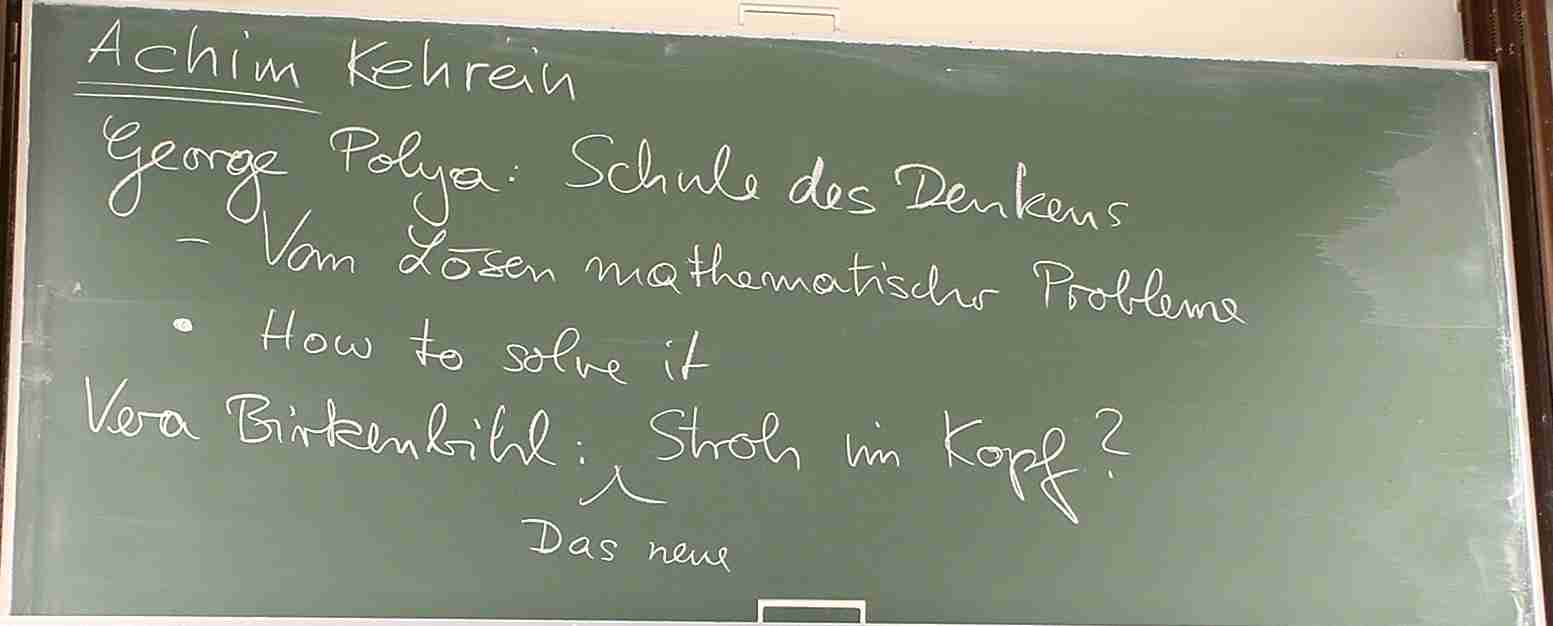 Achim Kehrein
George Polya: Schule des Denkens
- Vom Lösen mathematischer Probleme
• How to solve it
Vera Birkenbihl: Stroh im Kopf?
Das neue